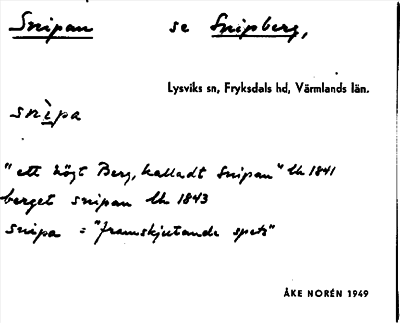 Snipan se Snipberg,
Lysviks sn, Fryksdals hd, Värmlands län.
snìpa
"ett högt Berg, kalladt Snipan" Lh 1841
berget snipan Lh 1843
snipa = "framskjutande spets"
ÅKE NORÉN 1949